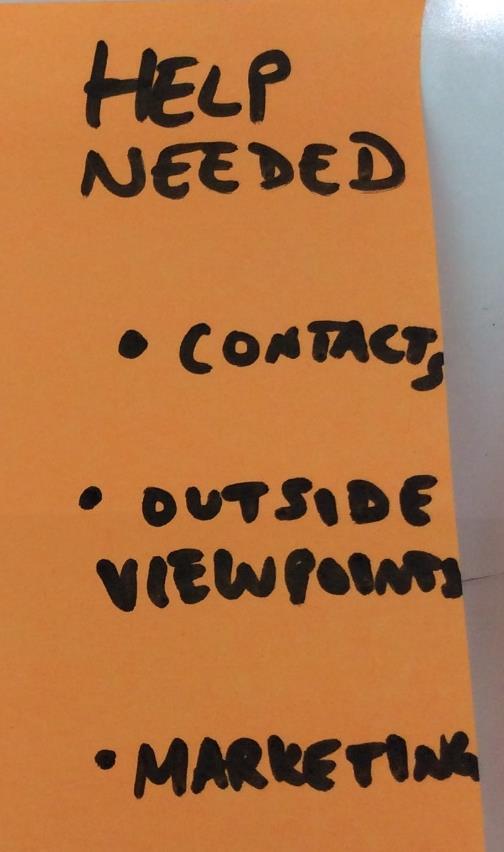 HELP
NEEDED
• CONTACTS
• OUTSIDE
VIEWPOINTS
• MARKETING